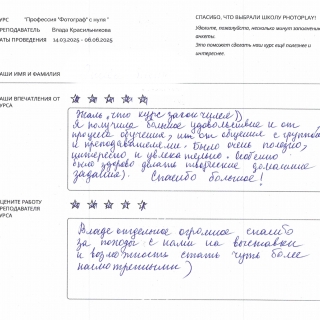 УРС "Профессия "Фотограф" с нуля"
РЕПОДАВАТЕЛЬ Влада Красильникова
АТЫ ПРОВЕДЕНИЯ 14.03.2025 - 06.08.2025
СПАСИБО, ЧТО ВЫБРАЛИ ШКОЛУ PHOTOPLAY!
Уделите, пожалуйста, несколько минут заполнению
анкеты.
Это поможет сделать наш курс ещё полезнее и
интереснее.
АШИ ИМЯ И ФАМИЛИЯ
АШИ ВПЕЧАТЛЕНИЯ ОТ
УРСА
Жаль, что курс закончился))
Я получила большое удовольствие и от
процесса обучения, и от общения с группой
и преподавателями. Было очень полезно,
интересно и увлекательно. Особенно
было здорово делать творческие домашние
задания). Спасибо большое!
ЦЕНИТЕ РАБОТУ
РЕПОДАВАТЕЛЯ
УРСА
Владе отдельное огромное спасибо
за походы с нами на выставки
и возможность стать чуть более
насмотренными)